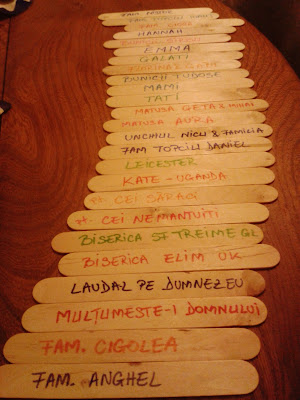 HANNAH
EMMA
GALATI
BUNICII TUDOSE
MAMI
TATI
MATUSA GETA & MIHAI
MATUSA AURA
UNCHIUL NICU & FAMILIA
FAM TOPCIU DANIEL
LEICESTER
KATE - UGANDA
CEI SARACI
CEI NEMANTUITI
BISERICA SF TREIME GL
BISERICA ELIM UK
LAUDAL PE DUMNEZEU
MULTUMESTE-I DOMNULUI
FAM. CIGOLEA
FAM. ANGHEL